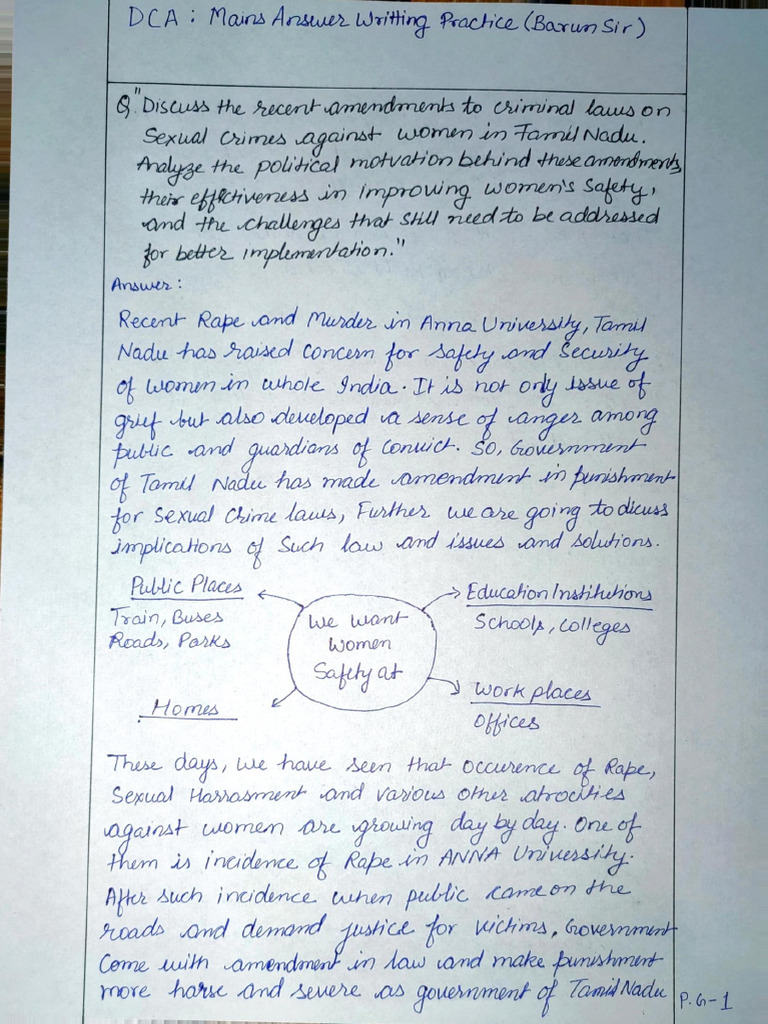 DCA : Mains Answer Writting Practice (Barun Sir)
Q. "Discuss the recent amendments to criminal laws on
Sexual Crimes against women in Tamil Nadu.
Analyze the political motvation behind these amendments,
their effectiveness in improving women's safety,
and the challenges that still need to be addressed
for better implementation."
Answer :
Recent Rape and Murder in Anna University, Tamil
Nadu has raised concern for safety and Security
of women in whole India. It is not only issue of
grief but also developed a sense of anger among
public and guardians of convict. So, Government
of Tamil Nadu has made amendment in punishment
for Sexual Crime laws, Further we are going to dicuss
implications of such law and issues and solutions.
Public Places
Train, Buses
Roads, Parks
Education Institutions
Schools, Colleges
We want
Women
Safety at
Homes
Work places
Offices
These days, we have seen that occurence of Rape,
Sexual Harrasment and various other atrocities
against women are growing day by day. One of
them is incidence of Rape in ANNA University.
After such incidence when public came on the
roads and demand justice for victims, Government
Come with amendment in law and make punishment
more harse and severe as government of Tamil Nadu
P.G-1